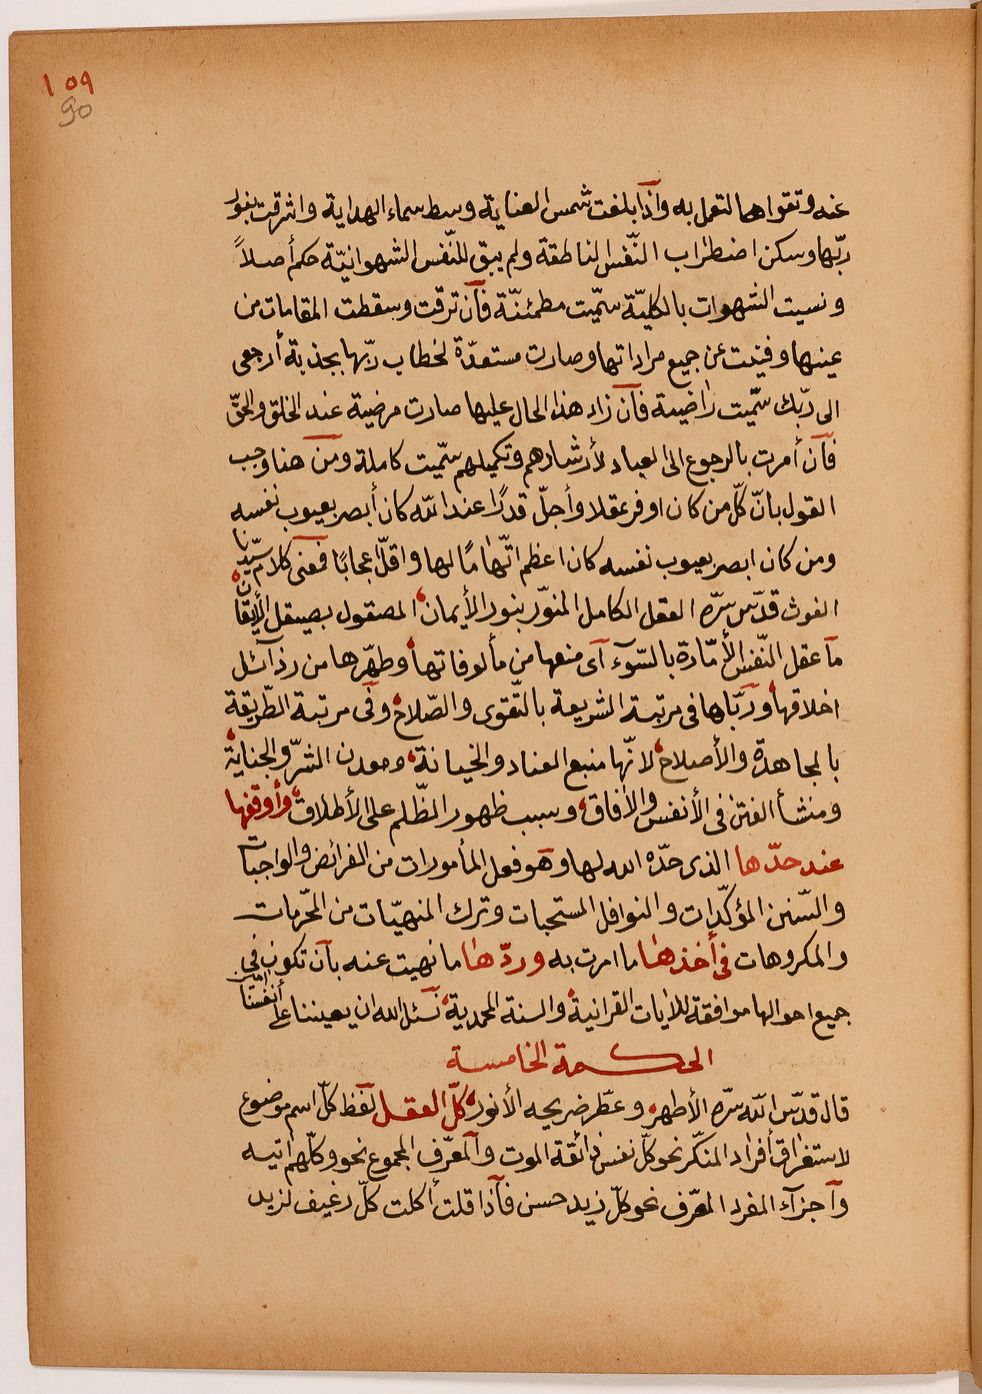 ١٥٩
90
عنه وتقواها لتعمل به واذا بلغت شمس العناية وسط سماء الهداية واشرقت بنور
ربّها وسكن اضطراب النّفس الناطقة ولم يبق للنّفس الشهوانيّة حكم أصلاً
ونسيت الشهوات بالكليّة سمّيت مطمئنّة فآن ترقت وسقطت المقامات من
عينها وفنيت عن جميع مراداتها وصارت مستعدّة لخطاب ربّها بجذبة أرجعى
الى ربّك سمّيت راضية فآن زاد هذا الحال عليها صارت مرضية عند الخلق والحقّ
فآن أمرت بالرجوع الى العباد لأرشادهم وتكميلهم سمّيت كاملة ومن هنا وجب
القول بانّ كلّ من كان اوفر عقلا وأجلّ قدرًا عند الله كان أبصر بعيوب نفسه
ومن كان ابصر بعيوب نفسه كان اعظم اتّهامًا لها واقلّ اعجابًا فمعنى كلام سيّدنا
الغوث قدّس سرّه العقل الكامل المنوّر بنور الأيمان المصقول بصيقل الأيقان
ما عقل النّفس الأمّارة بالسّوٓء آى منعها من مألوفاتها وطهّرها من رذآئل
اخلاقها وربّاها فى مرتبة الشريعة بالتّقوى والصّلاح وفى مرتبة الطّريقة
بالمجاهدة والأصلاح لانّها منبع العناد والخيانة ومعدن الشرّ والجناية
ومنشأ الفتن فى الأنفس والافاق وسبب ظهور الظّلم على الأطلاق وأوقفها
عند حدّها الذى حدّه الله لها وهو فعل المأمورات من الفرائض والواجبات
والسّنن المؤكّدات والنوافل المستحبات وترك المنهيّات من المحرّمات
والمكروهات فى أخذها ما امرت به وردّها ما نهيت عنه بآن تكون فى
جميع احوالها موافقة للايات القرانية والسنة المحمدية نسئل الله ان يعيننا على أنفسنا
الحكمة الخامسة
قال قدّس الله سرّه الأطهر وعطّر ضريحه الأنور كلّ العقل لفظ كلّ اسم موضوع
لاستغراق أفراد المنكّر نحو كلّ نفس ذائقة الموت والمعرّف المجموع نحو وكلّهم اتيه
وآجزآء المفرد المعرّف نحو كلّ زيد حسن فآذا قلت أكلت كلّ رغيف لزيد